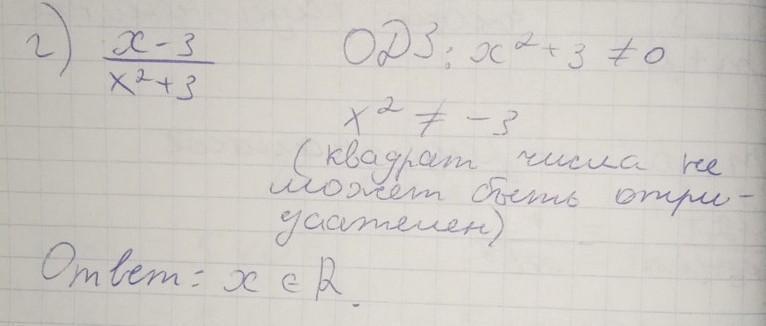 г) x-3 / x²+3 ОДЗ: x²+3 ≠ 0
x² ≠ -3
(квадрат числа не
может быть отри-
цаателен)
Ответ: x ∈ R.